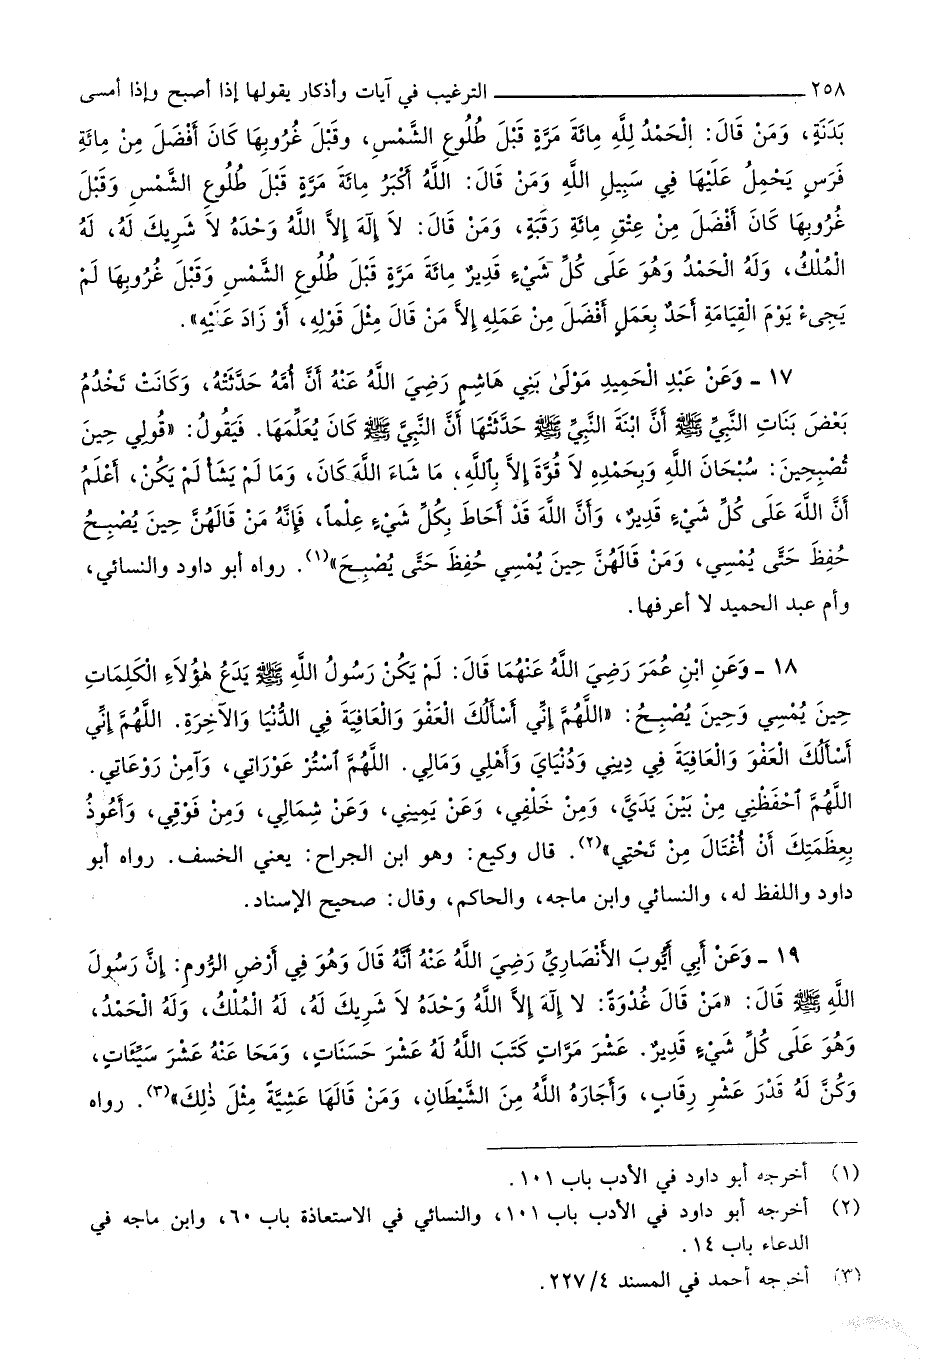 ٢٥٨ ــــــــــــــــــــــــــــــ الترغيب في آيات وأذكار يقولها إذا أصبح وإذا أمسى
بَدَنَةٍ، وَمَنْ قَالَ: الْحَمْدُ لِلَّهِ مِائَةَ مَرَّةٍ قَبْلَ طُلُوعِ الشَّمْسِ، وقَبْلَ غُرُوبِهَا كَانَ أَفْضَلَ مِنْ مِائَةِ
فَرَسٍ يَحْمِلُ عَلَيْهَا فِي سَبِيلِ اللَّهِ وَمَنْ قَالَ: اللَّهُ أَكْبَرُ مِائَةَ مَرَّةٍ قَبْلَ طُلُوعِ الشَّمْسِ وَقَبْلَ
غُرُوبِهَا كَانَ أَفْضَلَ مِنْ عِتْقِ مِائَةِ رَقَبَةٍ، وَمَنْ قَالَ: لاَ إِلَهَ إِلاَّ اللَّهُ وَحْدَهُ لاَ شَرِيكَ لَهُ، لَهُ
الْمُلْكُ، وَلَهُ الْحَمْدُ وَهُوَ عَلَى كُلِّ شَيْءٍ قَدِيرٌ مِائَةَ مَرَّةٍ قَبْلَ طُلُوعِ الشَّمْسِ وَقَبْلَ غُرُوبِهَا لَمْ
يَجِىءْ يَوْمَ الْقِيَامَةِ أَحَدٌ بِعَمَلٍ أَفْضَلَ مِنْ عَمَلِهِ إِلاَّ مَنْ قَالَ مِثْلَ قَوْلِهِ، أَوْ زَادَ عَلَيْهِ».
١٧ ـ وَعَنْ عَبْدِ الْحَمِيدِ مَوْلَىٰ بَنِي هَاشِمٍ رَضِيَ اللَّهُ عَنْهُ أَنَّ أُمَّهُ حَدَّثَتْهُ، وَكَانَتْ تَخْدُمُ
بَعْضَ بَنَاتِ النَّبِيِّ ﷺ أَنَّ ابْنَةَ النَّبِيِّ ﷺ حَدَّثَتْهَا أَنَّ النَّبِيَّ ﷺ كَانَ يُعَلِّمُهَا. فَيَقُولُ: «قُولِي حِينَ
تُصْبِحِينَ: سُبْحَانَ اللَّهِ وَبِحَمْدِهِ لاَ قُوَّةَ إِلاَّ بِٱللَّهِ، مَا شَاءَ اللَّهُ كَانَ، وَمَا لَمْ يَشَأْ لَمْ يَكُنْ، أَعْلَمُ
أَنَّ اللَّهَ عَلَى كُلِّ شَيْءٍ قَدِيرٌ، وَأَنَّ اللَّهَ قَدْ أَحَاطَ بِكُلِّ شَيْءٍ عِلْماً، فَإِنَّهُ مَنْ قَالَهُنَّ حِينَ يُصْبِحُ
حُفِظَ حَتَّى يُمْسِي، وَمَنْ قَالَهُنَّ حِينَ يُمْسِي حُفِظَ حَتَّى يُصْبِحَ»(١). رواه أبو داود والنسائي،
وأم عبد الحميد لا أعرفها.
١٨ ـ وَعَنِ ابْنِ عُمَرَ رَضِيَ اللَّهُ عَنْهُمَا قَالَ: لَمْ يَكُنْ رَسُولُ اللَّهِ ﷺ يَدَعُ هٰؤُلاَءِ الْكَلِمَاتِ
حِينَ يُمْسِي وَحِينَ يُصْبِحُ: «اللَّهُمَّ إِنِّي أَسْأَلُكَ الْعَفْوَ وَالْعَافِيَةَ فِي الدُّنْيَا وَالآخِرَةِ. اللَّهُمَّ إِنِّي
أَسْأَلُكَ الْعَفْوَ وَالْعَافِيَةَ فِي دِينِي وَدُنْيَايَ وَأَهْلِي وَمَالِي. اللَّهُمَّ ٱسْتُرْ عَوْرَاتِي، وَآمِنْ رَوْعَاتِي.
اللَّهُمَّ ٱحْفَظْنِي مِنْ بَيْنَ يَدَيَّ، وَمِنْ خَلْفِي، وَعَنْ يَمِينِي، وَعَنْ شِمَالِي، وَمِنْ فَوْقِي، وَأَعُوذُ
بِعِظَمَتِكَ أَنْ أُغْتَالَ مِنْ تَحْتِي»(٢). قال وكيع: وهو ابن الجراح: يعني الخسف. رواه أبو
داود واللفظ له، والنسائي وابن ماجه، والحاكم، وقال: صحيح الإسناد.
١٩ ـ وَعَنْ أَبِي أَيُّوبَ الأَنْصَارِيِّ رَضِيَ اللَّهُ عَنْهُ أَنَّهُ قَالَ وَهُوَ فِي أَرْضِ الرُّومِ: إِنَّ رَسُولَ
اللَّهِ ﷺ قَالَ: «مَنْ قَالَ غُدْوَةً: لا إِلَهَ إِلاَّ اللَّهُ وَحْدَهُ لاَ شَرِيكَ لَهُ، لَهُ الْمُلْكُ، وَلَهُ الْحَمْدُ،
وَهُوَ عَلَى كُلِّ شَيْءٍ قَدِيرٌ. عَشْرَ مَرَّاتٍ كَتَبَ اللَّهُ لَهُ عَشْرَ حَسَنَاتٍ، وَمَحَا عَنْهُ عَشْرَ سَيِّئَاتٍ،
وَكُنَّ لَهُ قَدْرَ عَشْرِ رِقَابٍ، وَأَجَارَهُ اللَّهُ مِنَ الشَّيْطَانِ، وَمَنْ قَالَهَا عَشِيَّةً مِثْلَ ذٰلِكَ»(٣). رواه
(١) أخرجه أبو داود في الأدب باب ١٠١.
(٢) أخرجه أبو داود في الأدب باب ١٠١، والنسائي في الاستعاذة باب ٦٠، وابن ماجه في
الدعاء باب ١٤.
(٣) أخرجه أحمد في المسند ٢٢٧/٤.